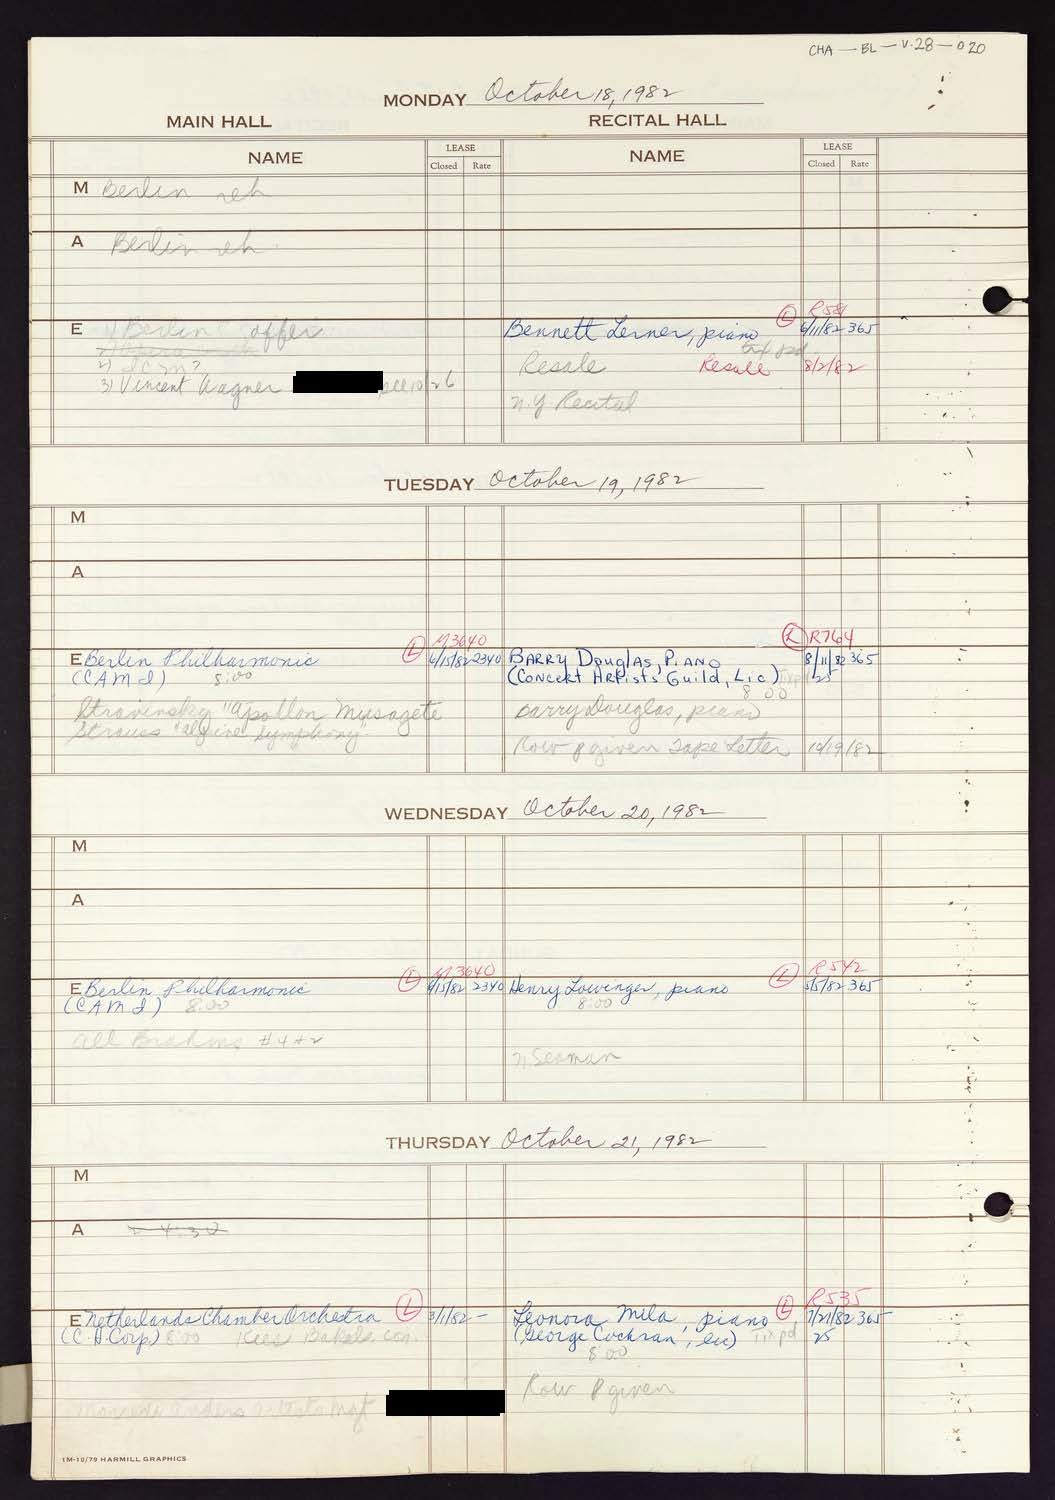 CHA — BL — V.28 — 020
MONDAY October 18, 1982
MAIN HALL RECITAL HALL
NAME LEASE Closed Rate NAME LEASE Closed Rate
M Berlin reh
A Berlin reh
L R581
E 1) Berlin offer Bennett Lerner, piano 6/11/82 365
2) Opera
2) ICM? Resale Resale 8/2/82
3) Vincent Wagner N.Y. Recital
TUESDAY October 19, 1982
M
A
L M3640 L R764
E Berlin Philharmonic 6/15/82 2340 BARRY Douglas, PIANO 8/11/82 365
(CAMI) 8:00 (CONCERT ARTISTS Guild, Lic) Tix pd 25
8:00
Stravinsky "Apollon Musagete Barry Douglas, piano
Strauss "Alpine Symphony Row P given Tape Letter 10/19/82
WEDNESDAY October 20, 1982
M
A
L M3640 L R542
E Berlin Philharmonic 6/15/82 2340 Henry Lowinger, piano 5/5/82 365
(CAMI) 8:00 8:00
All Brahms #4 + 2
N. Seaman
THURSDAY October 21, 1982
M
A 4:30
L L R535
E Netherlands Chamber Orchestra 3/1/82 – Leonora Mila, piano 7/21/82 365
(C.H. Corp) 8:00 Kees Bakels, con. (George Cochran, lic) Tix pd 25
8:00
Row P given
1M-10/79 HARMILL GRAPHICS